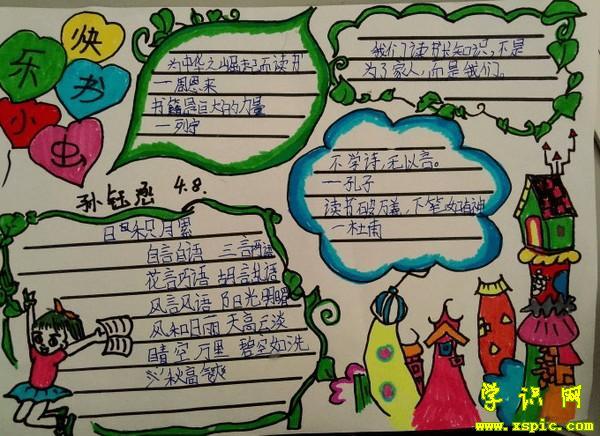 快
乐
书
小
虫
为中华之崛起而读书
一周恩来
书籍是巨大的力量
一列宁
我们读书长知识，不是
为了家人，而是我们。
不学诗，无以言。
一孔子
读书破万卷，下笔如有神
一杜甫
孙钰涵 4.8.
日积月累
自言自语 三言两语
花言巧语 胡言乱语
风言风语 阳光明媚
风和日丽 天高云淡
晴空万里 碧空如洗
秋高气爽
学识网
www.xspic.com